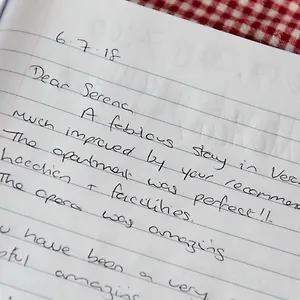 6.7.18
Dear Serena
A fabulous stay in Ver
much improved by your recommen
The apartment was perfect!!
location + facilities.
The opera was amazing
u have been a very
pful amazing